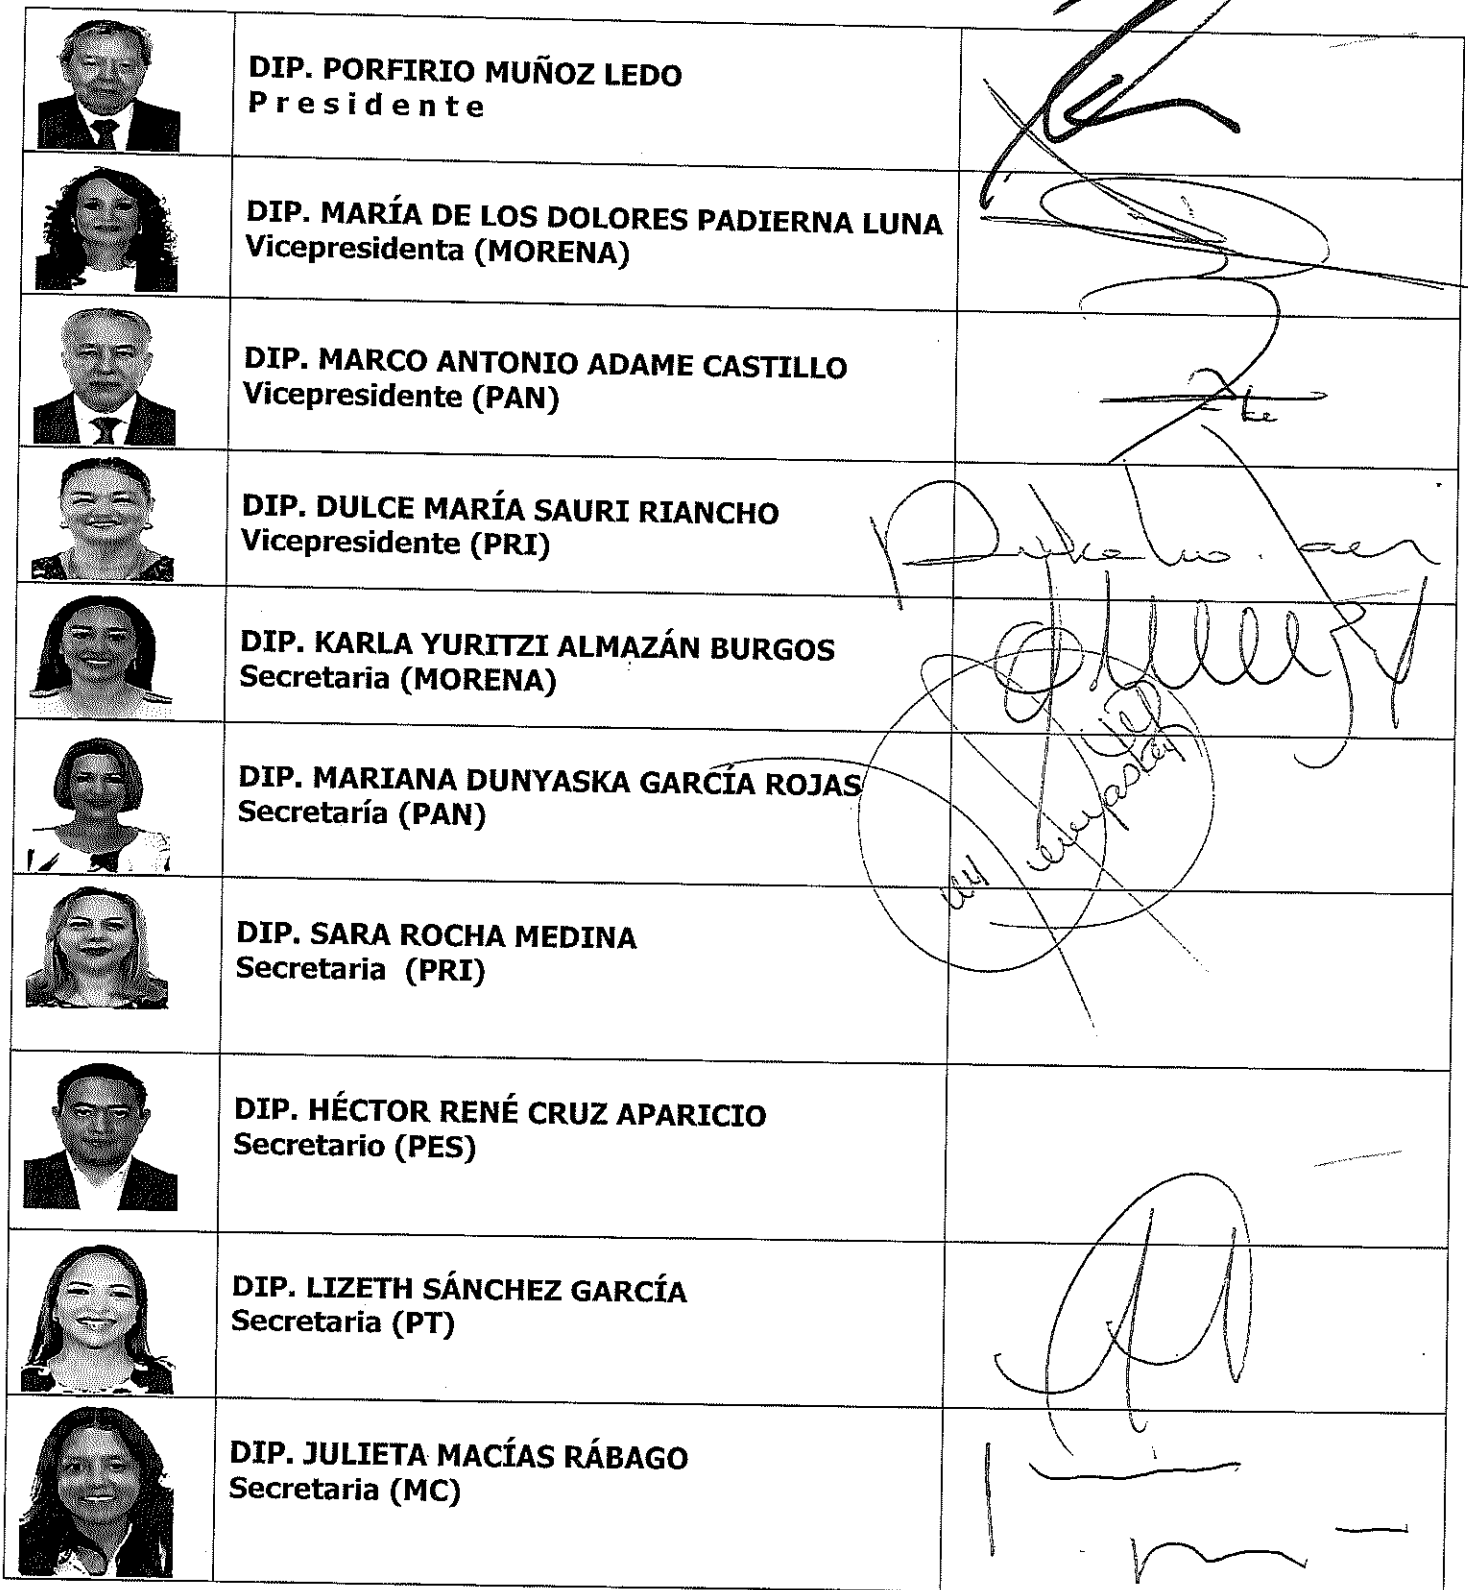 DIP. PORFIRIO MUÑOZ LEDO
Presidente
DIP. MARÍA DE LOS DOLORES PADIERNA LUNA
Vicepresidenta (MORENA)
DIP. MARCO ANTONIO ADAME CASTILLO
Vicepresidente (PAN)
DIP. DULCE MARÍA SAURI RIANCHO
Vicepresidente (PRI)
DIP. KARLA YURITZI ALMAZÁN BURGOS
Secretaria (MORENA)
DIP. MARIANA DUNYASKA GARCÍA ROJAS
Secretaría (PAN)
DIP. SARA ROCHA MEDINA
Secretaria (PRI)
DIP. HÉCTOR RENÉ CRUZ APARICIO
Secretario (PES)
DIP. LIZETH SÁNCHEZ GARCÍA
Secretaria (PT)
DIP. JULIETA MACÍAS RÁBAGO
Secretaria (MC)